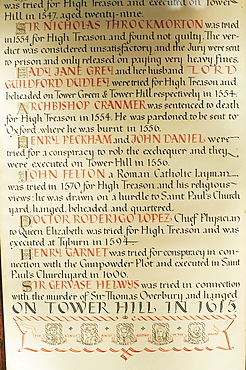 tried for High Treason and executed on Tower
Hill in 1547, aged twenty-nine.
SIR NICHOLAS THROCKMORTON was tried
in 1554 for High Treason and found not guilty. The ver-
dict was considered unsatisfactory and the Jury were sent
to prison and only released on paying very heavy fines.
LADY JANE GREY and her husband LORD
GUILDFORD DUDLEY were tried for High Treason and
beheaded on Tower Green & Tower Hill respectively in 1554.
ARCHBISHOP CRANMER was sentenced to death
for High Treason in 1554. He was pardoned to be sent to
Oxford, where he was burnt in 1556.
HENRY PECKHAM and JOHN DANIEL were
tried for a conspiracy to rob the exchequer and they
were executed on Tower Hill in 1556.
JOHN FELTON a Roman Catholic Layman,
was tried in 1570 for High Treason and his religious
views: he was drawn on a hurdle to Saint Paul's Church
yard, hanged, beheaded and quartered.
DOCTOR RODERIGO LOPEZ, Chief Physician
to Queen Elizabeth was tried for High Treason and was
executed at Tyburn in 1594.
HENRY GARNET was tried for conspiracy in con-
nection with the Gunpowder Plot and executed in Saint
Paul's Churchyard in 1606.
SIR GERVASE HELWYS was tried in connection
with the murder of Sir Thomas Overbury and hanged
ON TOWER HILL IN 1615